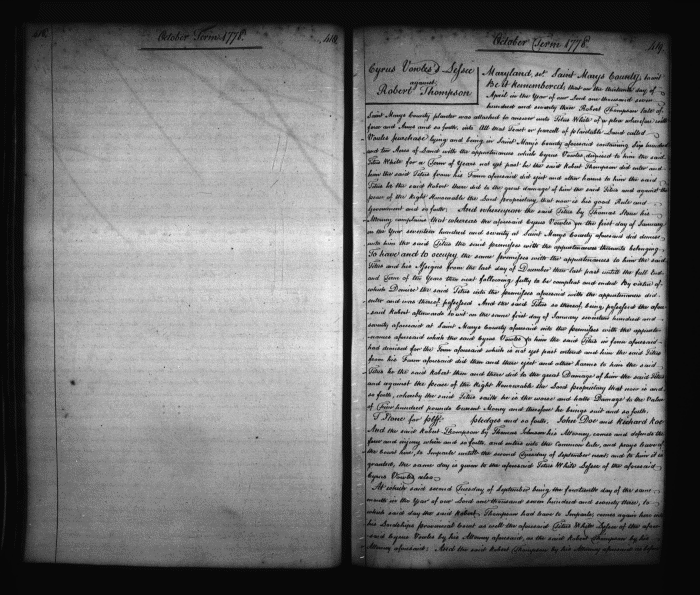 418.
October Term 1778.
418.
October Term 1778.
419.
Cyrus Vowles's Lessee
against
Robert Thompson
Maryland, sct. Saint Marys County, to wit
Be it Remembered, that on the thirteenth day of
April in the Year of our Lord one thousand seven
hundred and seventy three Robert Thompson late of
Saint Marys County planter was attached to answer unto Titus White of a plea wherefore with
force and Arms and so forth, into All that Tract or parcell of plantable Land called
Vowles purchase lying and being in Saint Marys County aforesaid containing five hundred
and two Acres of Land with the appurtenances which Cyrus Vowles demised to him the said
Titus White for a Term of Years not yet past he the said Robert Thompson did enter and
him the said Titus from his Farm aforesaid did eject and other harms to him the said
Titus he the said Robert there did to the great damage of him the said Titus and against the
peace of the Right Honorable the Lord proprietary that now is his good Rule and
Government and so forth; And whereupon the said Titus by Thomas Stone his
Attorney complains that whereas the aforesaid Cyrus Vowles on the first day of January
in the Year seventeen hundred and seventy at Saint Marys County aforesaid did demise
unto him the said Titus the said premisses with the appurtenances thereunto belonging
To have and to occupy the same premisses with the appurtenances to him the said
Titus and his Assigns from the last day of December then last past until the full End
and Term of Years then next following, fully to be compleat and ended By virtue of
which Demise the said Titus into the premisses aforesaid with the appurtenances did
enter and was thereof possessed And the said Titus so thereof being possessed the afore
said Robert afterwards to wit on the same first day of January seventeen hundred and
seventy aforesaid at Saint Marys County aforesaid into the premisses with the appurte
nances aforesaid which the said Cyrus Vowles to him the said Titus in form aforesaid
had demised for the Term aforesaid which is not yet past entered and him the said Titus
from his Farm aforesaid did then and there eject and other harms to him the said
Titus he the said Robert then and there did to the great Damage of him the said Titus
and against the peace of the Right Honorable the Lord proprietary that now is and
so forth, whereby the said Titus saith he is the worse and hath Damage to the Value
of Four hundred pounds Current Money and therefore he brings suit and so forth.
T Stone for plff. pledges and so forth, John Doe and Richard Roe
And the said Robert Thompson by Thomas Johnson his Attorney, comes and defends the
force and injury when and so forth, and enters into the Common rule, and prays leave of
the Court here, to Imparle untill the second Tuesday of September next; and to him it is
granted, the same day is given to the aforesaid Titus White Lessee of the aforesaid
Cyrus Vowles also
At which said second Tuesday of September being the fourteenth day of the same
month in the Year of our Lord one thousand seven hundred and seventy three, to
which said day the said Robert Thompson had leave to Imparle, comes again here into
his Lordships provincial Court as well the aforesaid Titus White Lessee of the afore
said Cyrus Vowles by his Attorney aforesaid, as the said Robert Thompson by his
Attorney aforesaid; And the said Robert Thompson by his Attorney aforesaid as before